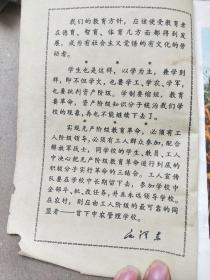 我们的教育方针，应该使受教育者
在德育、智育、体育几方面都得到发
展，成为有社会主义觉悟的有文化的劳
动者。
学生也是这样，以学为主，兼学别
样，即不但学文，也要学工、学农、学军，
也要批判资产阶级。学制要缩短，教育
要革命，资产阶级知识分子统治我们学
校的现象，再也不能继续下去了。
实现无产阶级教育革命，必须有工
人阶级领导，必须有工人群众参加，配合
解放军战士，同学校的学生、教员、工人
中决心把无产阶级教育革命进行到底的
积极分子实行革命的三结合。工人宣传
队要在学校中长期留下去，参加学校中
全部斗、批、改任务，并且永远领导学校。
在农村，则应由工人阶级的最可靠的同
盟者——贫下中农管理学校。
毛泽东